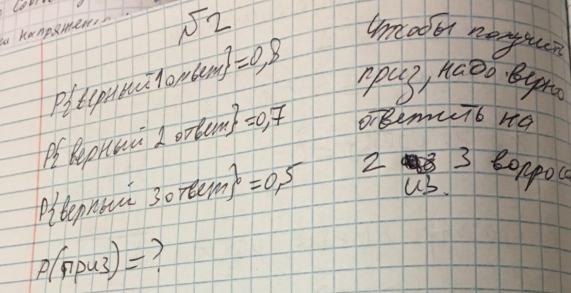 напряжен
№2
P{верный 1 ответ}=0,8
P{верный 2 ответ}=0,7
P{верный 3 ответ}=0,5
P(приз)=?
Чтобы получить
приз, надо верно
ответить на
2 из 3 вопроса